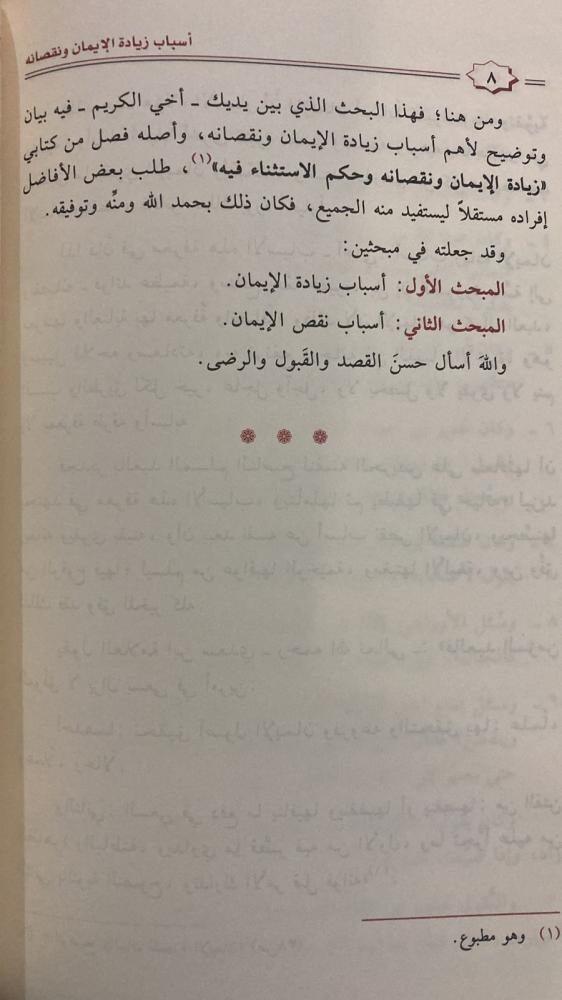 أسباب زيادة الإيمان ونقصانه
٨
ومن هنا؛ فهذا البحث الذي بين يديك ـ أخي الكريم ـ فيه بيان
وتوضيح لأهم أسباب زيادة الإيمان ونقصانه، وأصله فصل من كتابي
«زيادة الإيمان ونقصانه وحكم الاستثناء فيه»(١)، طلب بعض الأفاضل
إفراده مستقلاً ليستفيد منه الجميع، فكان ذلك بحمد الله ومنِّه وتوفيقه.
وقد جعلته في مبحثين:
المبحث الأول: أسباب زيادة الإيمان.
المبحث الثاني: أسباب نقص الإيمان.
واللهَ أسأل حسنَ القصد والقَبول والرضى.
(١) وهو مطبوع.